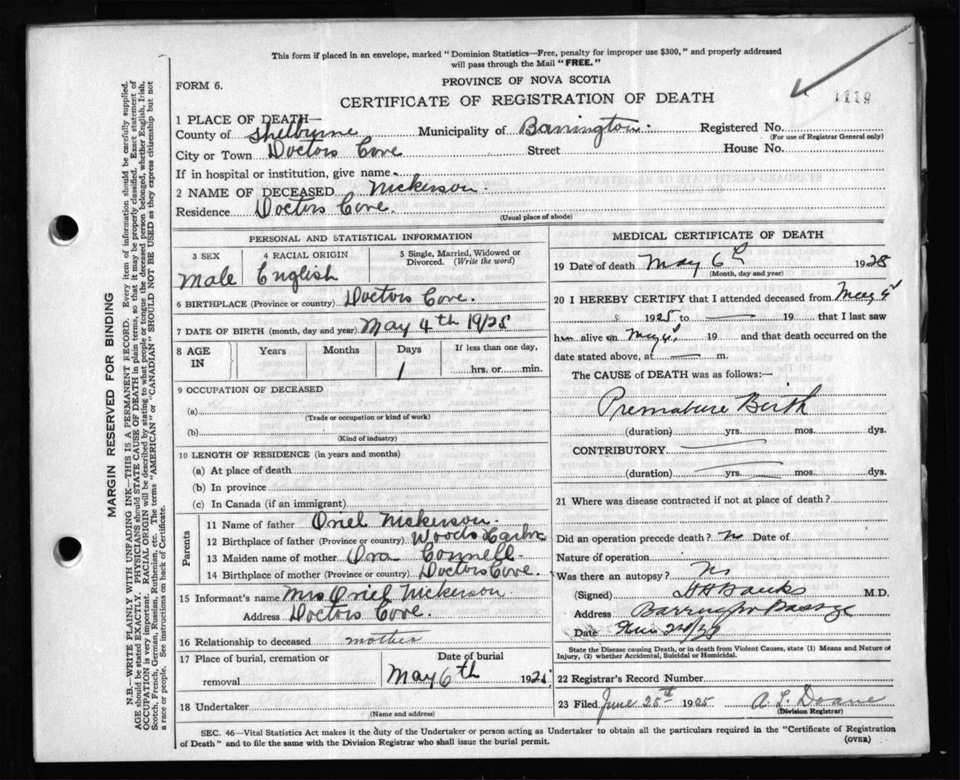 This form if placed in an envelope, marked "Dominion Statistics—Free, penalty for improper use $300," and properly addressed
will pass through the Mail "FREE."
FORM 6.
PROVINCE OF NOVA SCOTIA
CERTIFICATE OF REGISTRATION OF DEATH
1119
1 PLACE OF DEATH—
County of Shelburne Municipality of Barrington. Registered No.
(For use of Registrar General only)
City or Town Doctors Cove Street House No.
If in hospital or institution, give name
2 NAME OF DECEASED Nickerson.
Residence Doctors Cove.
(Usual place of abode)
PERSONAL AND STATISTICAL INFORMATION
3 SEX 4 RACIAL ORIGIN 5 Single, Married, Widowed or
Divorced. (Write the word)
Male English
6 BIRTHPLACE (Province or country) Doctors Cove.
7 DATE OF BIRTH (month, day and year) May 4th 1925
8 AGE IN Years Months Days If less than one day,
1 hrs. or min.
9 OCCUPATION OF DECEASED
(a)
(Trade or occupation or kind of work)
(b)
(Kind of industry)
10 LENGTH OF RESIDENCE (in years and months)
(a) At place of death
(b) In province
(c) In Canada (if an immigrant)
Parents
11 Name of father Oriel Nickerson.
12 Birthplace of father (Province or country) Woods Harbr
13 Maiden name of mother Ora Connell
14 Birthplace of mother (Province or country) Doctors Cove.
15 Informant's name Mrs Oriel Nickerson
Address Doctors Cove.
16 Relationship to deceased mother
17 Place of burial, cremation or Date of burial
removal May 6th 192
18 Undertaker
(Name and address)
MEDICAL CERTIFICATE OF DEATH
19 Date of death May 6th 1925
(Month, day and year)
20 I HEREBY CERTIFY that I attended deceased from May
1925 to — 19 that I last saw
him alive on May 19 and that death occurred on the
date stated above, at — m.
The CAUSE of DEATH was as follows:—
Premature Birth
(duration) yrs. mos. dys.
CONTRIBUTORY
(duration) yrs. mos. dys.
21 Where was disease contracted if not at place of death?
Did an operation precede death? No Date of
Nature of operation
Was there an autopsy? No
(Signed) Banks M.D.
Address Barrington Passage
Date
State the Disease causing Death, or in death from Violent Causes, state (1) Means and Nature of
Injury, (2) whether Accidental, Suicidal or Homicidal.
22 Registrar's Record Number
23 Filed June 25th 1925 A. L. Doane
(Division Registrar)
SEC. 46—Vital Statistics Act makes it the duty of the Undertaker or person acting as Undertaker to obtain all the particulars required in the "Certificate of Registration
of Death" and to file the same with the Division Registrar who shall issue the burial permit. (OVER)
MARGIN RESERVED FOR BINDING
N.B.—WRITE PLAINLY WITH UNFADING INK—THIS IS A PERMANENT RECORD. Every item of information should be carefully supplied.
AGE should be stated EXACTLY. PHYSICIANS should STATE CAUSE OF DEATH in plain terms, so that it may be properly classified. Exact statement of
OCCUPATION is very important. RACIAL ORIGIN will be described by stating to what people or tongue the deceased person belonged, whether English, Irish,
Scotch, French, German, Russian, Ruthenian, etc. The terms "AMERICAN" or "CANADIAN" SHOULD NOT BE USED as they express citizenship but not
a race or people. See instructions on back of Certificate.